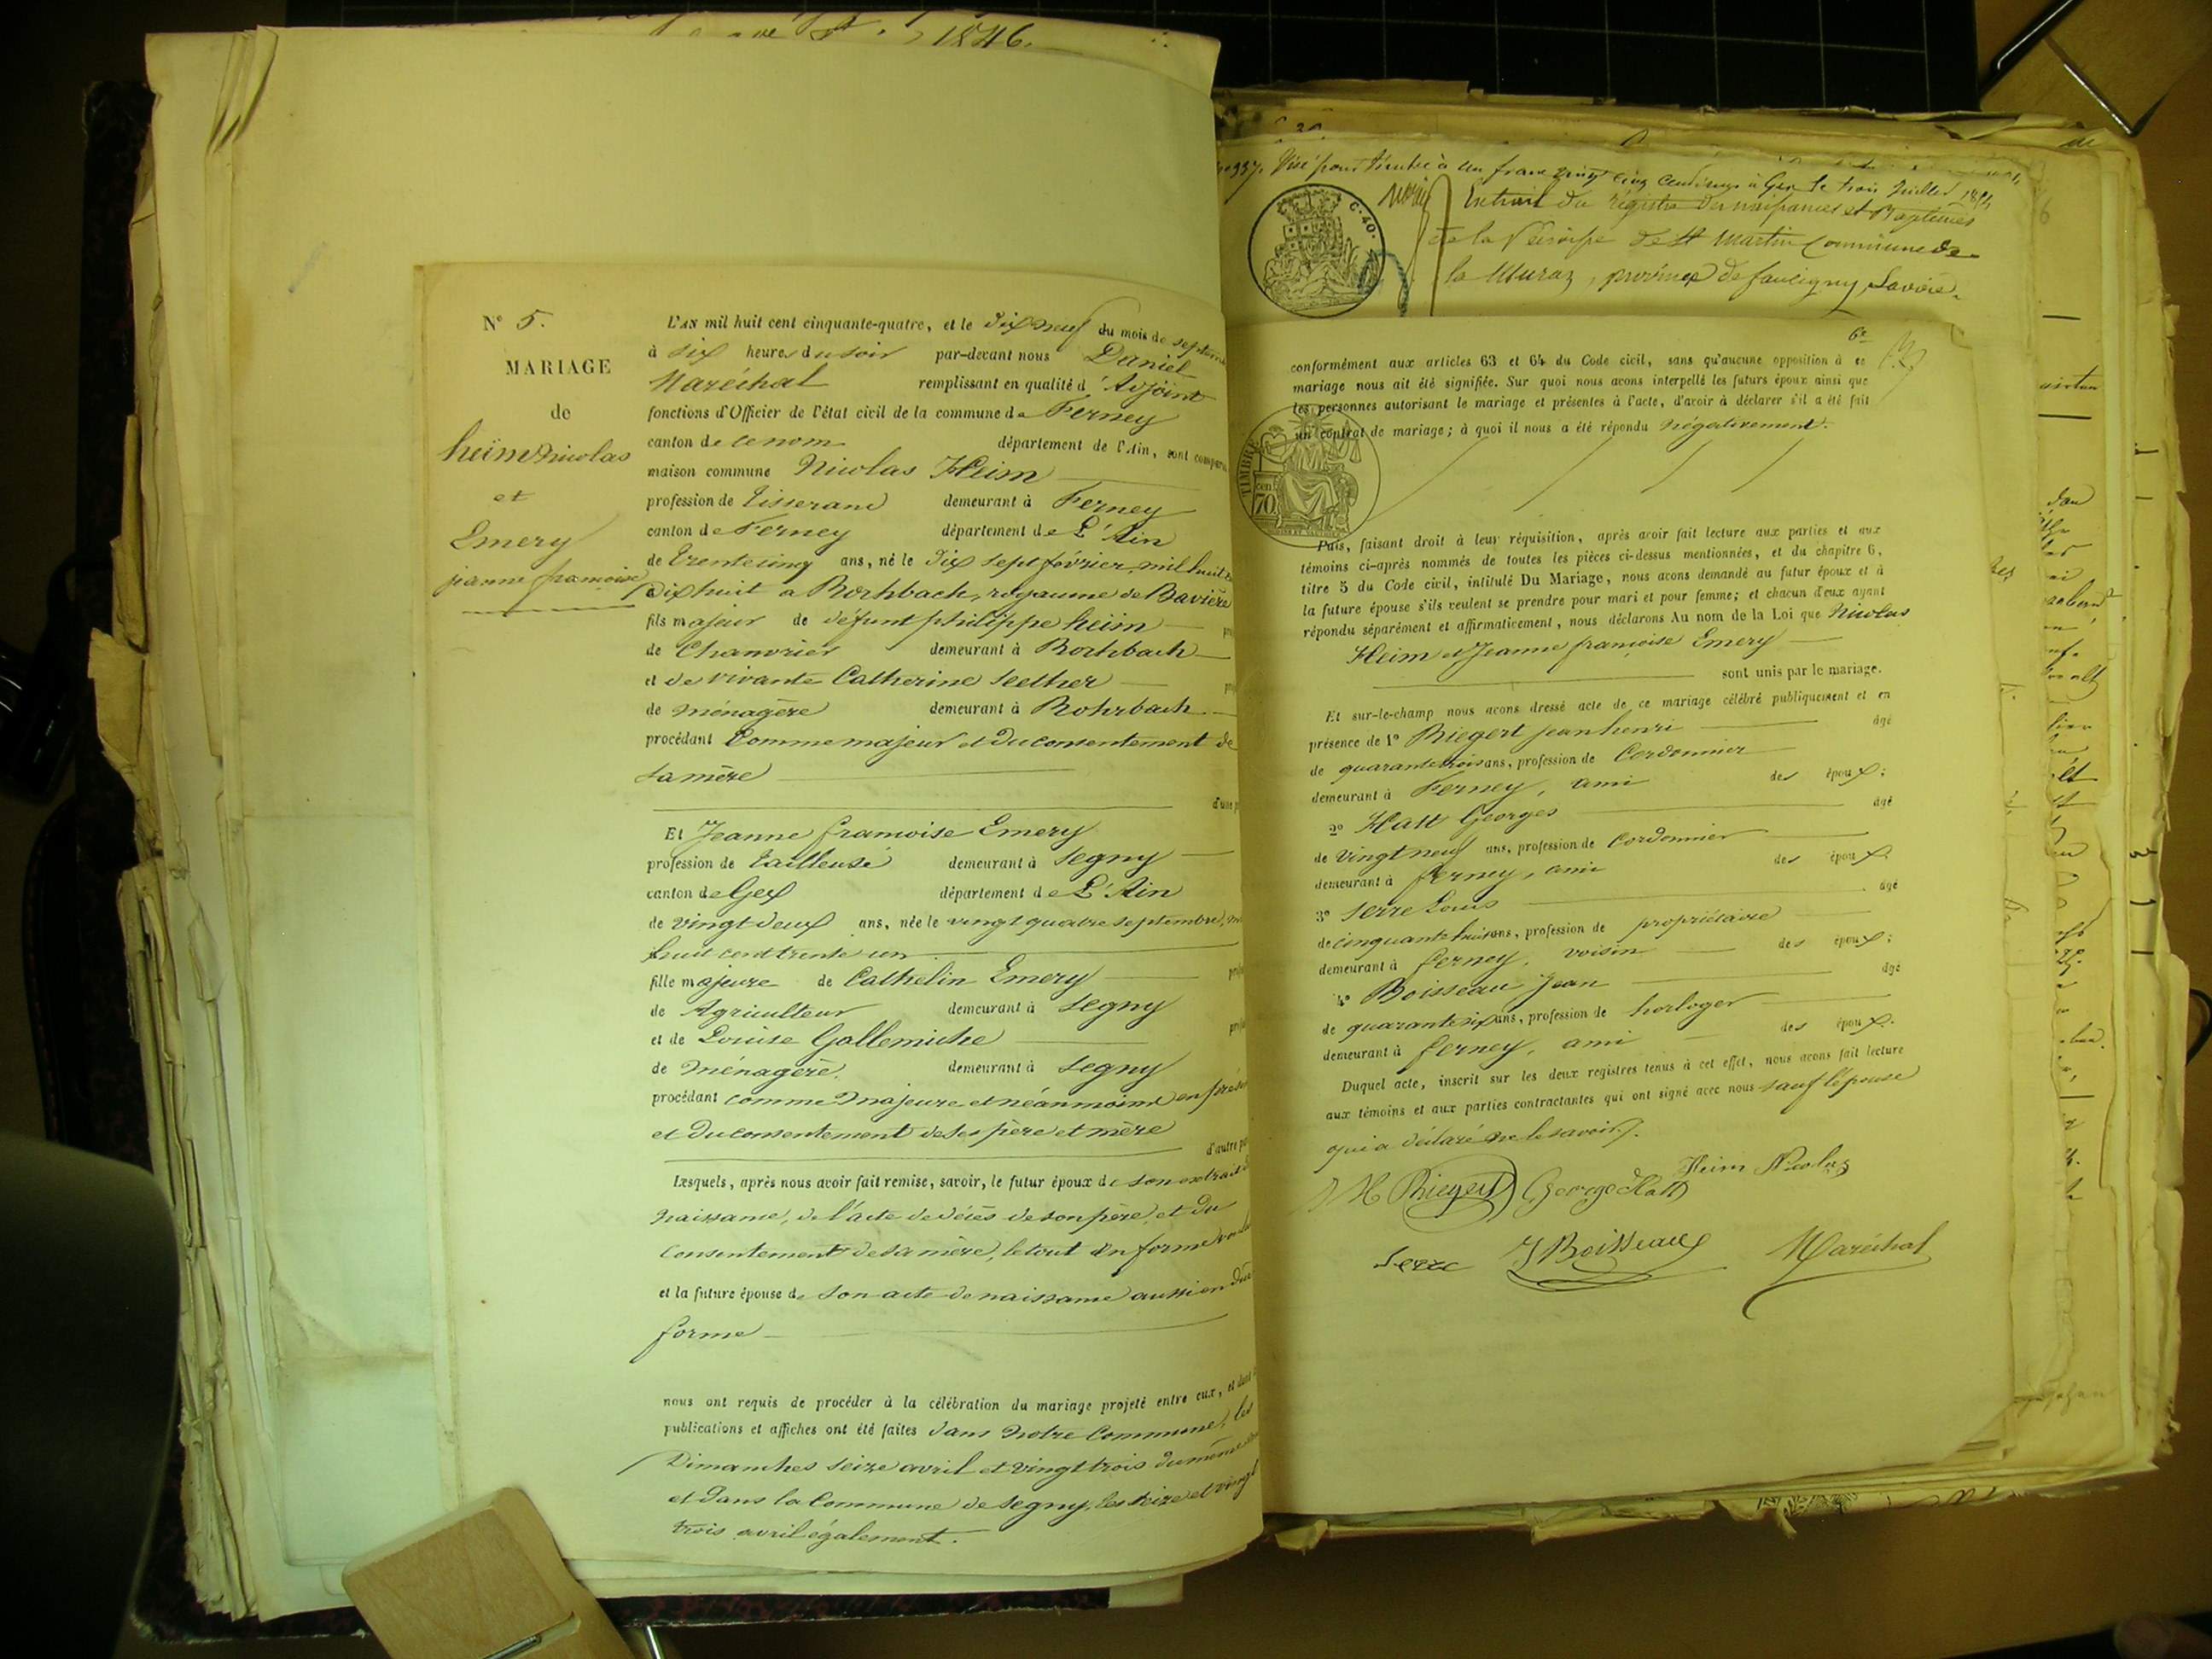 1846.
N° 5.
MARIAGE
de
heim Nicolas
et
Emery
jeanne françoise
L'AN mil huit cent cinquante-quatre, et le dix neuf du mois de septem
à six heures du soir par-devant nous Daniel
Maréchal remplissant en qualité d'Adjoint
fonctions d'Officier de l'état civil de la commune de Ferney
canton de ce nom département de l'Ain, sont comparu
maison commune Nicolas Heim
profession de tisserand demeurant à Ferney
canton de Ferney département de L'Ain
de trente cinq ans, né le dix sept février mil huit c
dix huit a Rorhbach, royaume de Bavière
fils majeur de défunt philippe heim
de Chanvrier demeurant à Rorhbach
et de vivante Catherine Seether
de Ménagère demeurant à Rohrbach
procédant Comme majeur et du consentement de
sa mère
d'une p
Et Jeanne françoise Emery
profession de tailleuse demeurant à Segny
canton de Gex département de L'Ain
de vingt deux ans, née le vingt quatre septembre, m
huit cent trente un
fille majeure de Cathelin Emery
de Agriculteur demeurant à Segny
et de Louise Gallemiche
de Ménagère demeurant à Segny
procédant comme majeure et néanmoins en prése
et du consentement de ses père et mère
d'autre pa
Lesquels, après nous avoir fait remise, savoir, le futur époux de son extrait d
Naissance, de l'acte de décès de son père, et du
Consentement de sa mère, le tout en forme voul
et la future épouse de son acte de naissance aussi en due
forme
nous ont requis de procéder à la célébration du mariage projeté entre eux, et dont
publications et affiches ont été faites dans notre Commune, les
Dimanches seize avril et vingt trois du même
et dans la Commune de Segny, les seize et vingt
trois avril également.
337. Visé pour timbre à un franc vingt cinq centimes à Gex le trois juillet
Extrait du régistre des naissances et Baptêmes
de la Paroisse de St Martin Commune de
la Muraz, province de faucigny, Savoie.
C. 40.
conformément aux articles 63 et 64 du Code civil, sans qu'aucune opposition à ce
mariage nous ait été signifiée. Sur quoi nous avons interpellé les futurs époux ainsi que
les personnes autorisant le mariage et présentes à l'acte, d'avoir à déclarer s'il a été fait
un contrat de mariage; à quoi il nous a été répondu Négativement.
TIMBRE
cen
70.
Puis, faisant droit à leur réquisition, après avoir fait lecture aux parties et aux
témoins ci-après nommés de toutes les pièces ci-dessus mentionnées, et du chapitre 6,
titre 5 du Code civil, intitulé Du Mariage, nous avons demandé au futur époux et à
la future épouse s'ils veulent se prendre pour mari et pour femme; et chacun d'eux ayant
répondu séparément et affirmativement, nous déclarons Au nom de la Loi que Nicolas
Heim et Jeanne françoise Emery
sont unis par le mariage.
Et sur-le-champ nous avons dressé acte de ce mariage célébré publiquement et en
présence de 1° Riegert jean henri âgé
de quarante trois ans, profession de Cordonnier
demeurant à Ferney, ami des époux;
2° Hatt Georges âgé
de vingt neuf ans, profession de Cordonnier
demeurant à ferney, ami des époux.
3° Serre Louis âgé
de cinquante huit ans, profession de propriétaire
demeurant à ferney, voisin des époux;
4° Boisseau Jean âgé
de quarante six ans, profession de horloger
demeurant à ferney, ami des époux.
Duquel acte, inscrit sur les deux registres tenus à cet effet, nous avons fait lecture
aux témoins et aux parties contractantes qui ont signé avec nous sauf l'épouse
qui a déclaré ne le savoir.
Heim Nicolas
H Riegert George Hatt
Serre J Boisseau Maréchal